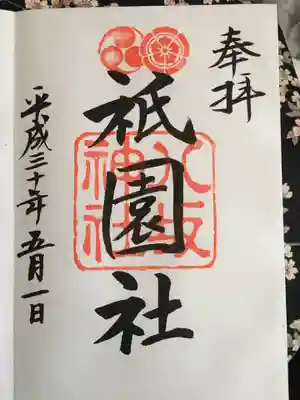 奉拝
祇園社
八坂神社
平成三十年五月一日